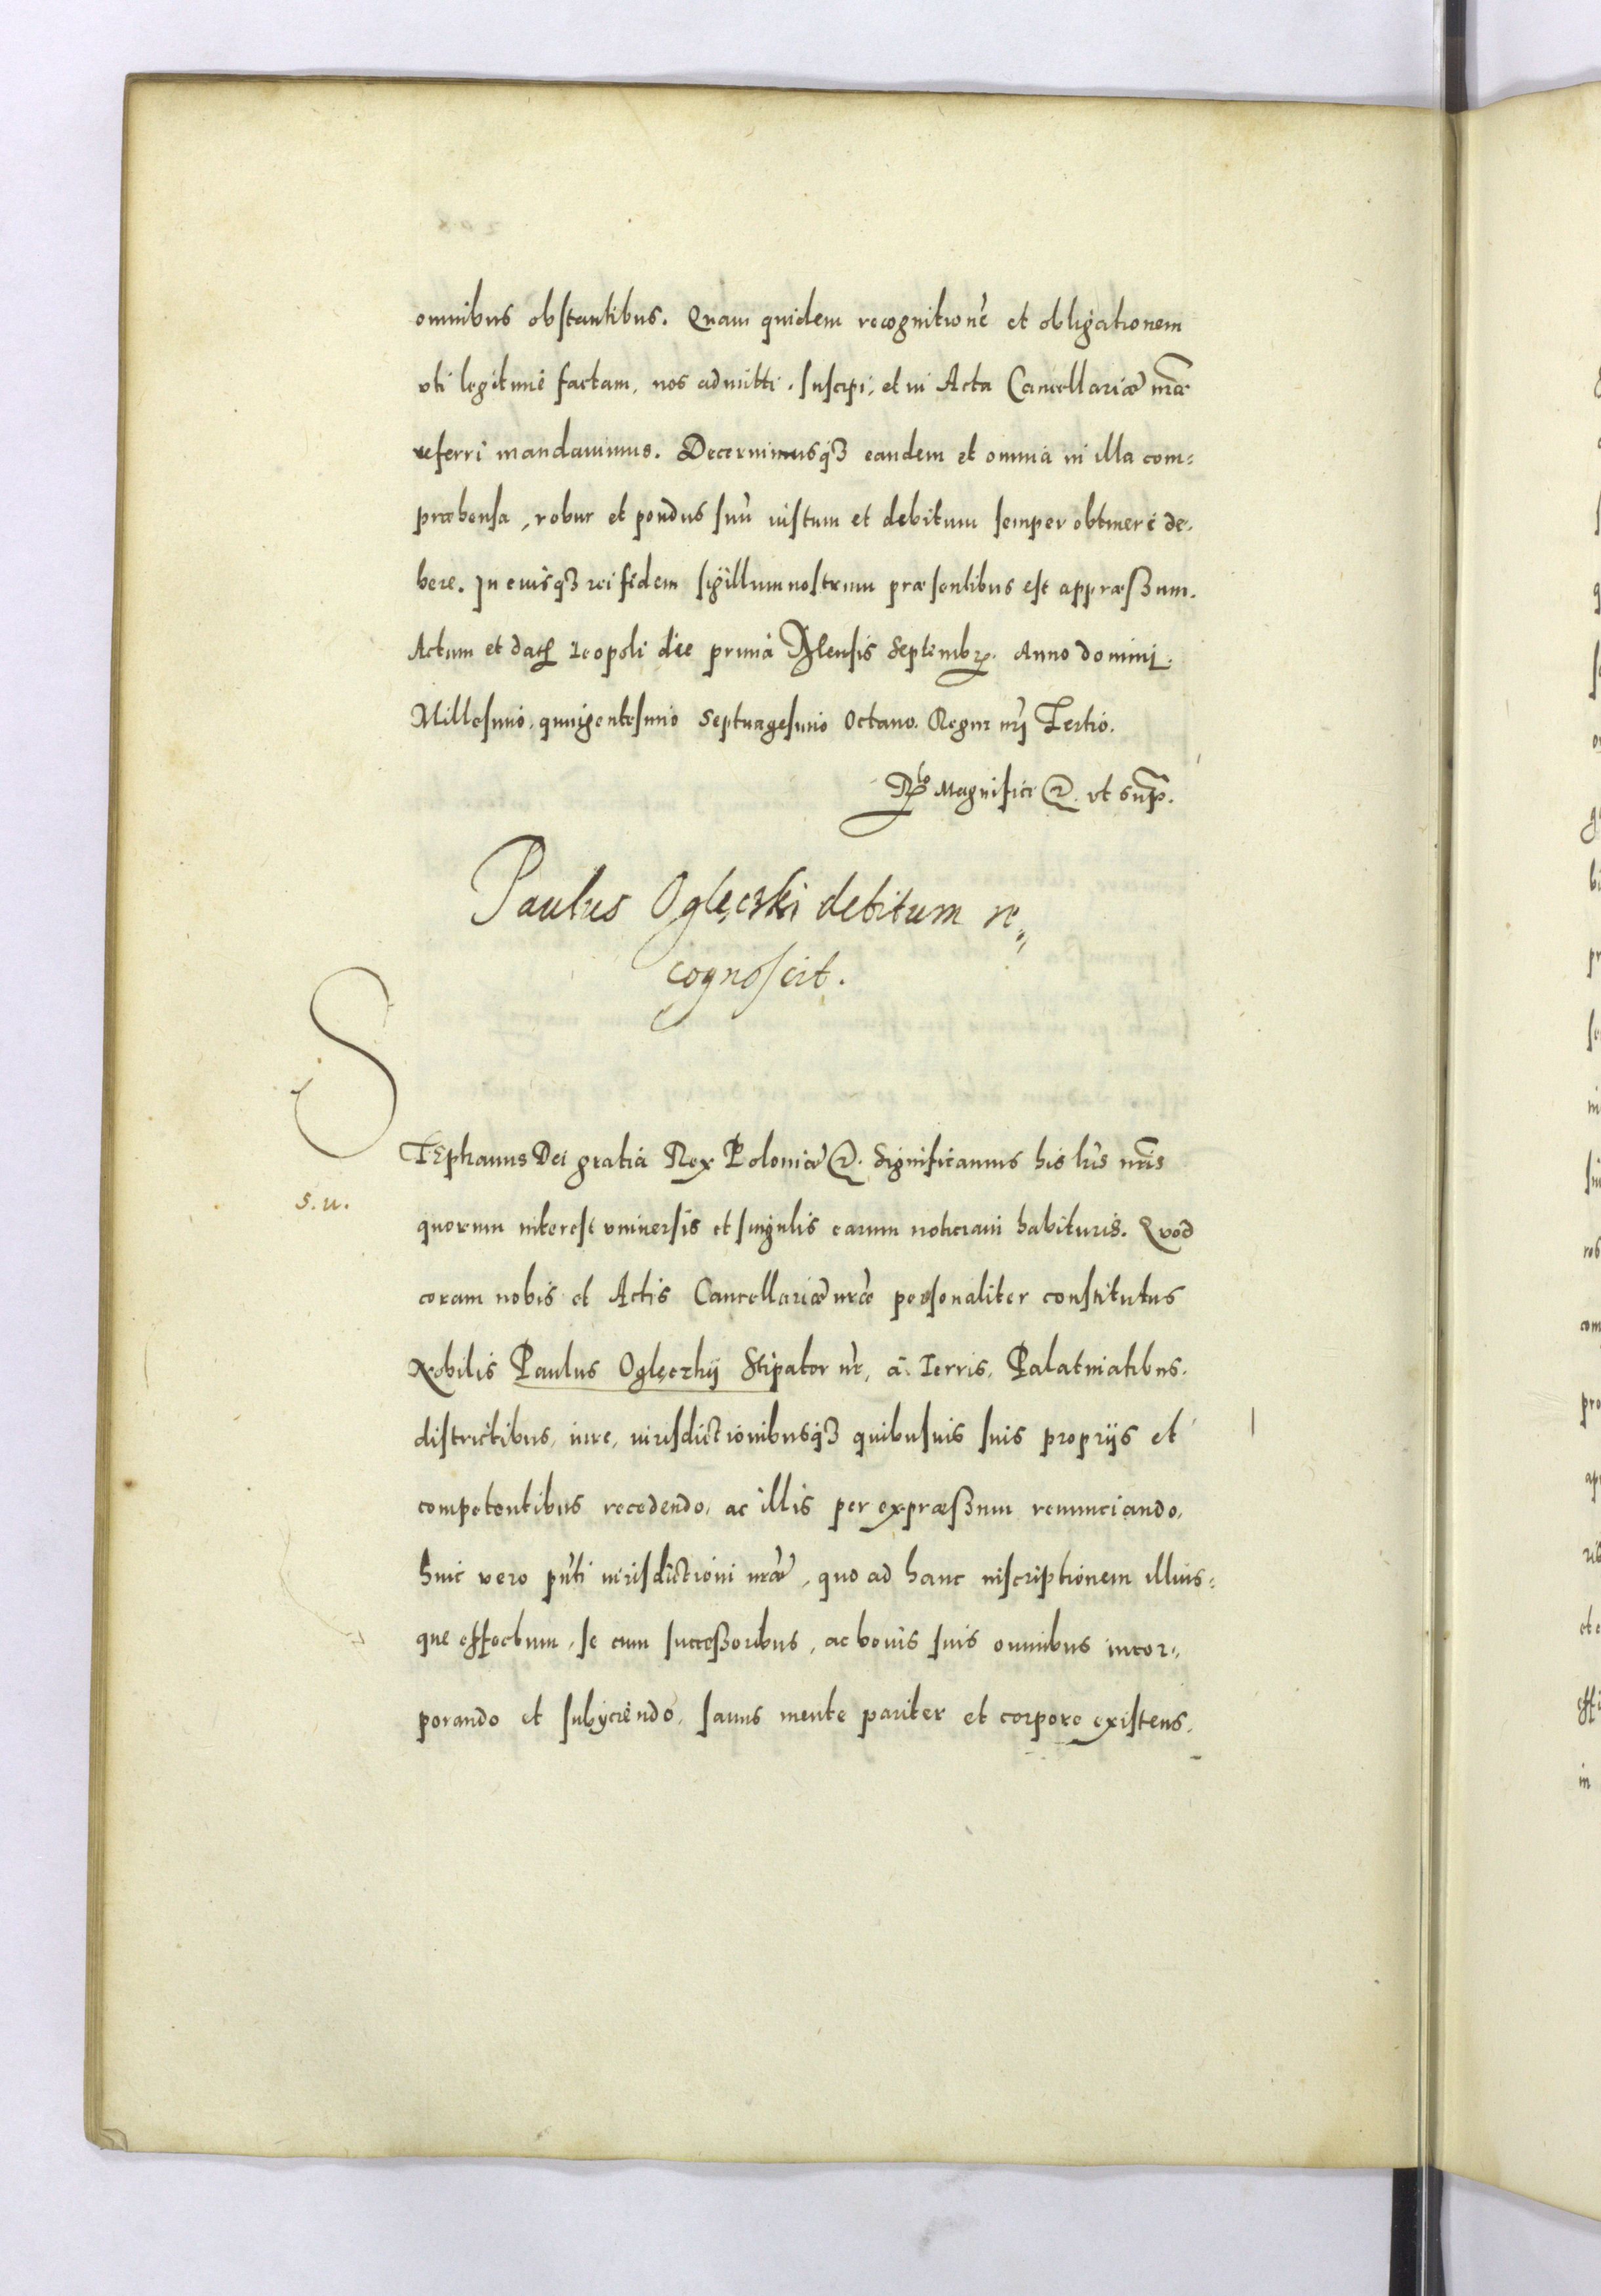 omnibus obstantibus. Quam quidem recognitionē et obligationem
vti legitimè factam, nos admitti, suscipi, et in Acta Cancellariæ nr̄æ
referri mandauimus. Decernimusq₃ eandem et omnia in illa com-
præhensa, robur et pondus suū iustum et debitum semper obtinere de-
bere. In cuiusq₃ rei fidem sigillum nostrum præsentibus est appræssum.
Actum et dat Leopoli die prima Mensis Septembr. Anno domini.
Millesimo, quingentesimo Septuagesimo Octauo. Regni nr̄i Tertio.
Rlo Magnifici &. vt supr.
Paulus Oglęczki debitum re-
cognoscit.
STEphanus Dei gratia Rex Poloniæ &. Significamus his lr̄is nr̄is
s. u.
quorum interest vniuersis et singulis earum noticiam habituris. Quod
coram nobis et Actis Cancellariæ nr̄æ personaliter constitutus
Nobilis Paulus Oglęczkij Stipator nr̄, à Terris, Palatinatibus.
districtibus, iure, iurisdictionibusq₃ quibusuis suis proprijs et
competentibus recedendo, ac illis per expræssum renunciando,
huic vero pn̄ti iurisdictioni nr̄æ, quo ad hanc inscriptionem illius-
que effectum, se cum successoribus, ac bonis suis omnibus incor-
porando et subijciendo, sanus mente pariter et corpore existens,